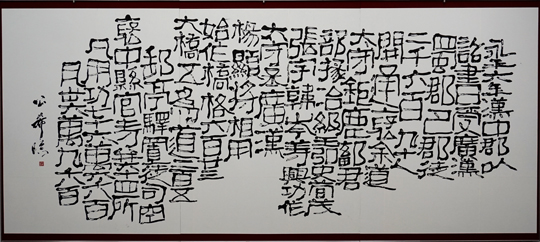 永平六年漢中郡以
詔書受廣漢
蜀郡巴郡徒
二千六百九十人
開通褒余道
太守鉅鹿鄐君
部掾治級王弘史荀茂
張宇韓岑等興功作
太守丞廣漢
楊顯將相用
始作橋格六百卅三
大橋五為道二百五
郵亭驛置徒司空
褒中縣官寺并六十四所
凡用功七十六萬六千八百
瓦卅六萬九千八百